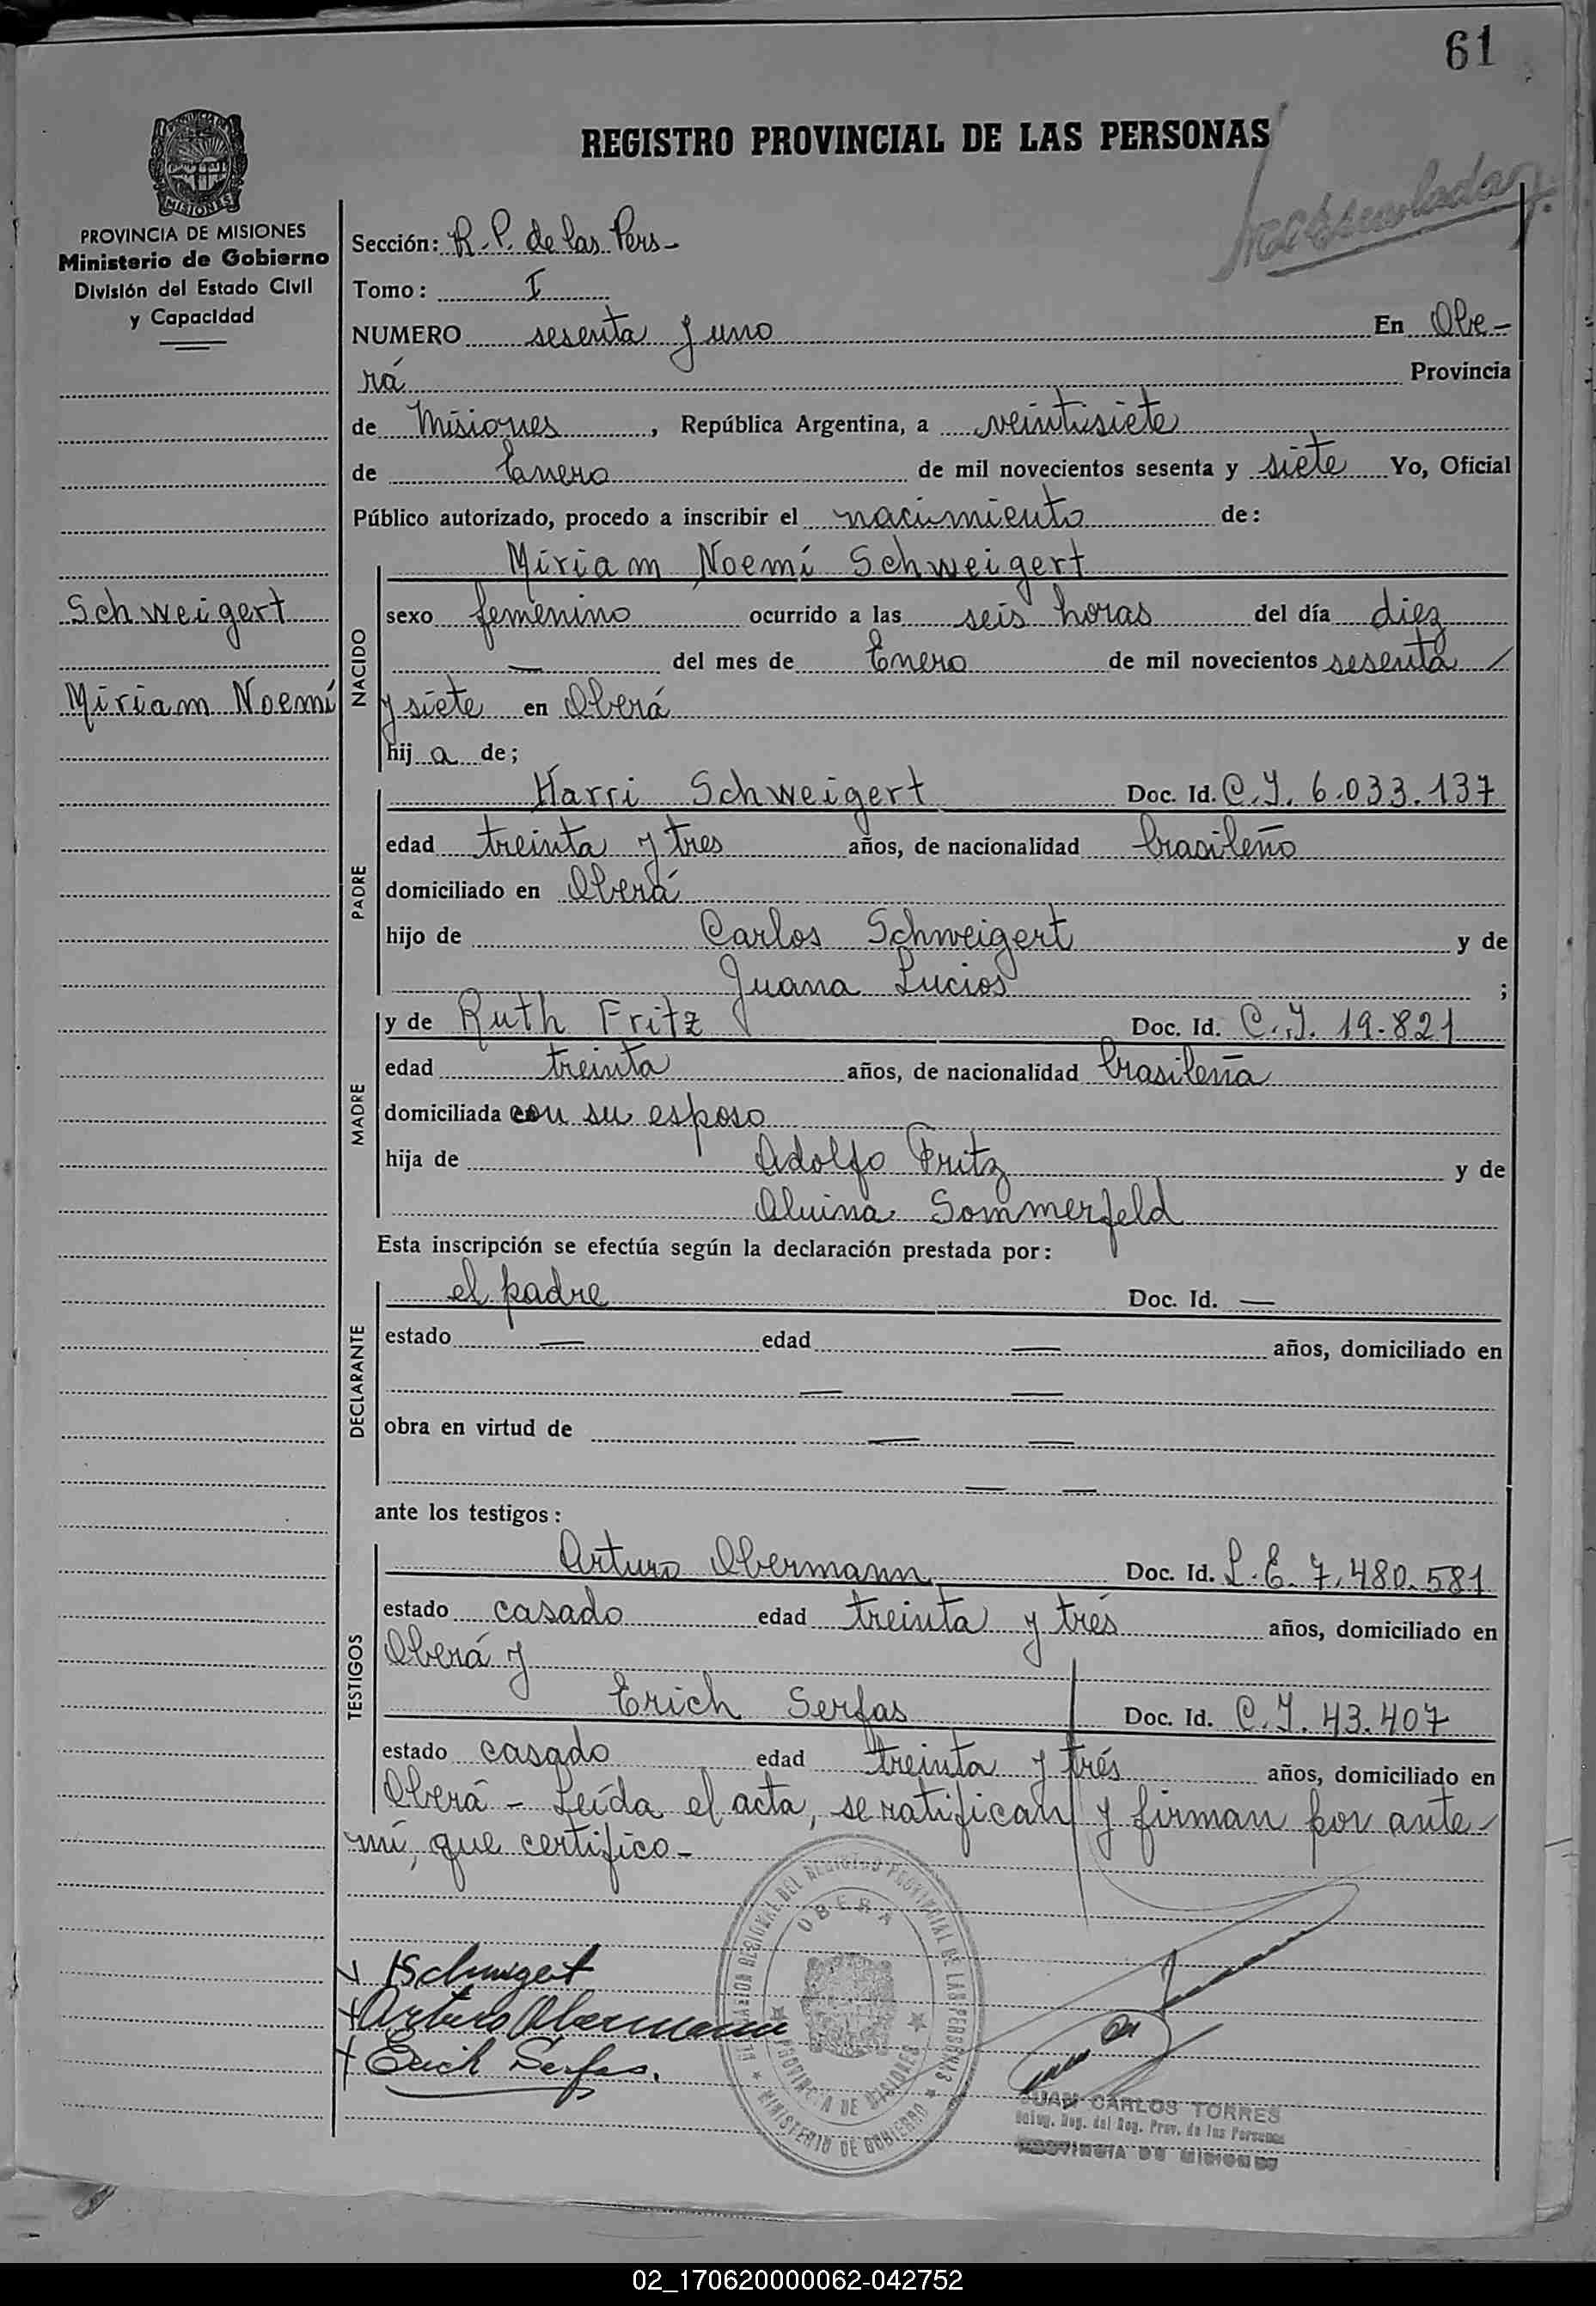 61
REGISTRO PROVINCIAL DE LAS PERSONAS
PROVINCIA DE MISIONES
Ministerio de Gobierno
División del Estado Civil
y Capacidad
MISIONES
Sección: R. P. de las Pers-
Tomo: I
NUMERO sesenta y uno En Obe-
rá Provincia
de Misiones, República Argentina, a veintisiete
de Enero de mil novecientos sesenta y siete Yo, Oficial
Público autorizado, procedo a inscribir el nacimiento de:
Schweigert
Miriam Noemí
NACIDO
Miriam Noemí Schweigert
sexo femenino ocurrido a las seis horas del día diez
— del mes de Enero de mil novecientos sesenta
y siete en Oberá
hij a de;
PADRE
Harri Schweigert Doc. Id. C.I. 6.033.137
edad treinta y tres años, de nacionalidad brasileño
domiciliado en Oberá
hijo de Carlos Schweigert y de
Juana Lucios ;
MADRE
y de Ruth Fritz Doc. Id. C.I. 19.821
edad treinta años, de nacionalidad brasileña
domiciliada con su esposo
hija de Adolfo Fritz y de
Aluina Sommerfeld
Esta inscripción se efectúa según la declaración prestada por:
DECLARANTE
el padre Doc. Id. —
estado — edad — años, domiciliado en
— —
obra en virtud de — —
— —
ante los testigos:
TESTIGOS
Arturo Obermann Doc. Id. L.E. 7.480.581
estado casado edad treinta y trés años, domiciliado en
Oberá y
Erich Serfas Doc. Id. C.I. 43.407
estado casado edad treinta y trés años, domiciliado en
Oberá - Leída el acta, se ratifican y firman por ante
mí, que certifico.-
HSchweigert
Arturo Obermann
Erich Serfas.
DELEGACION REGIONAL DEL REGISTRO PROVINCIAL DE LAS PERSONAS
OBERA
PROVINCIA DE MISIONES
MINISTERIO DE GOBIERNO
JUAN CARLOS TORRES
Deleg. Reg. del Reg. Prov. de las Personas
PROVINCIA DE MISIONES
02_170620000062-042752